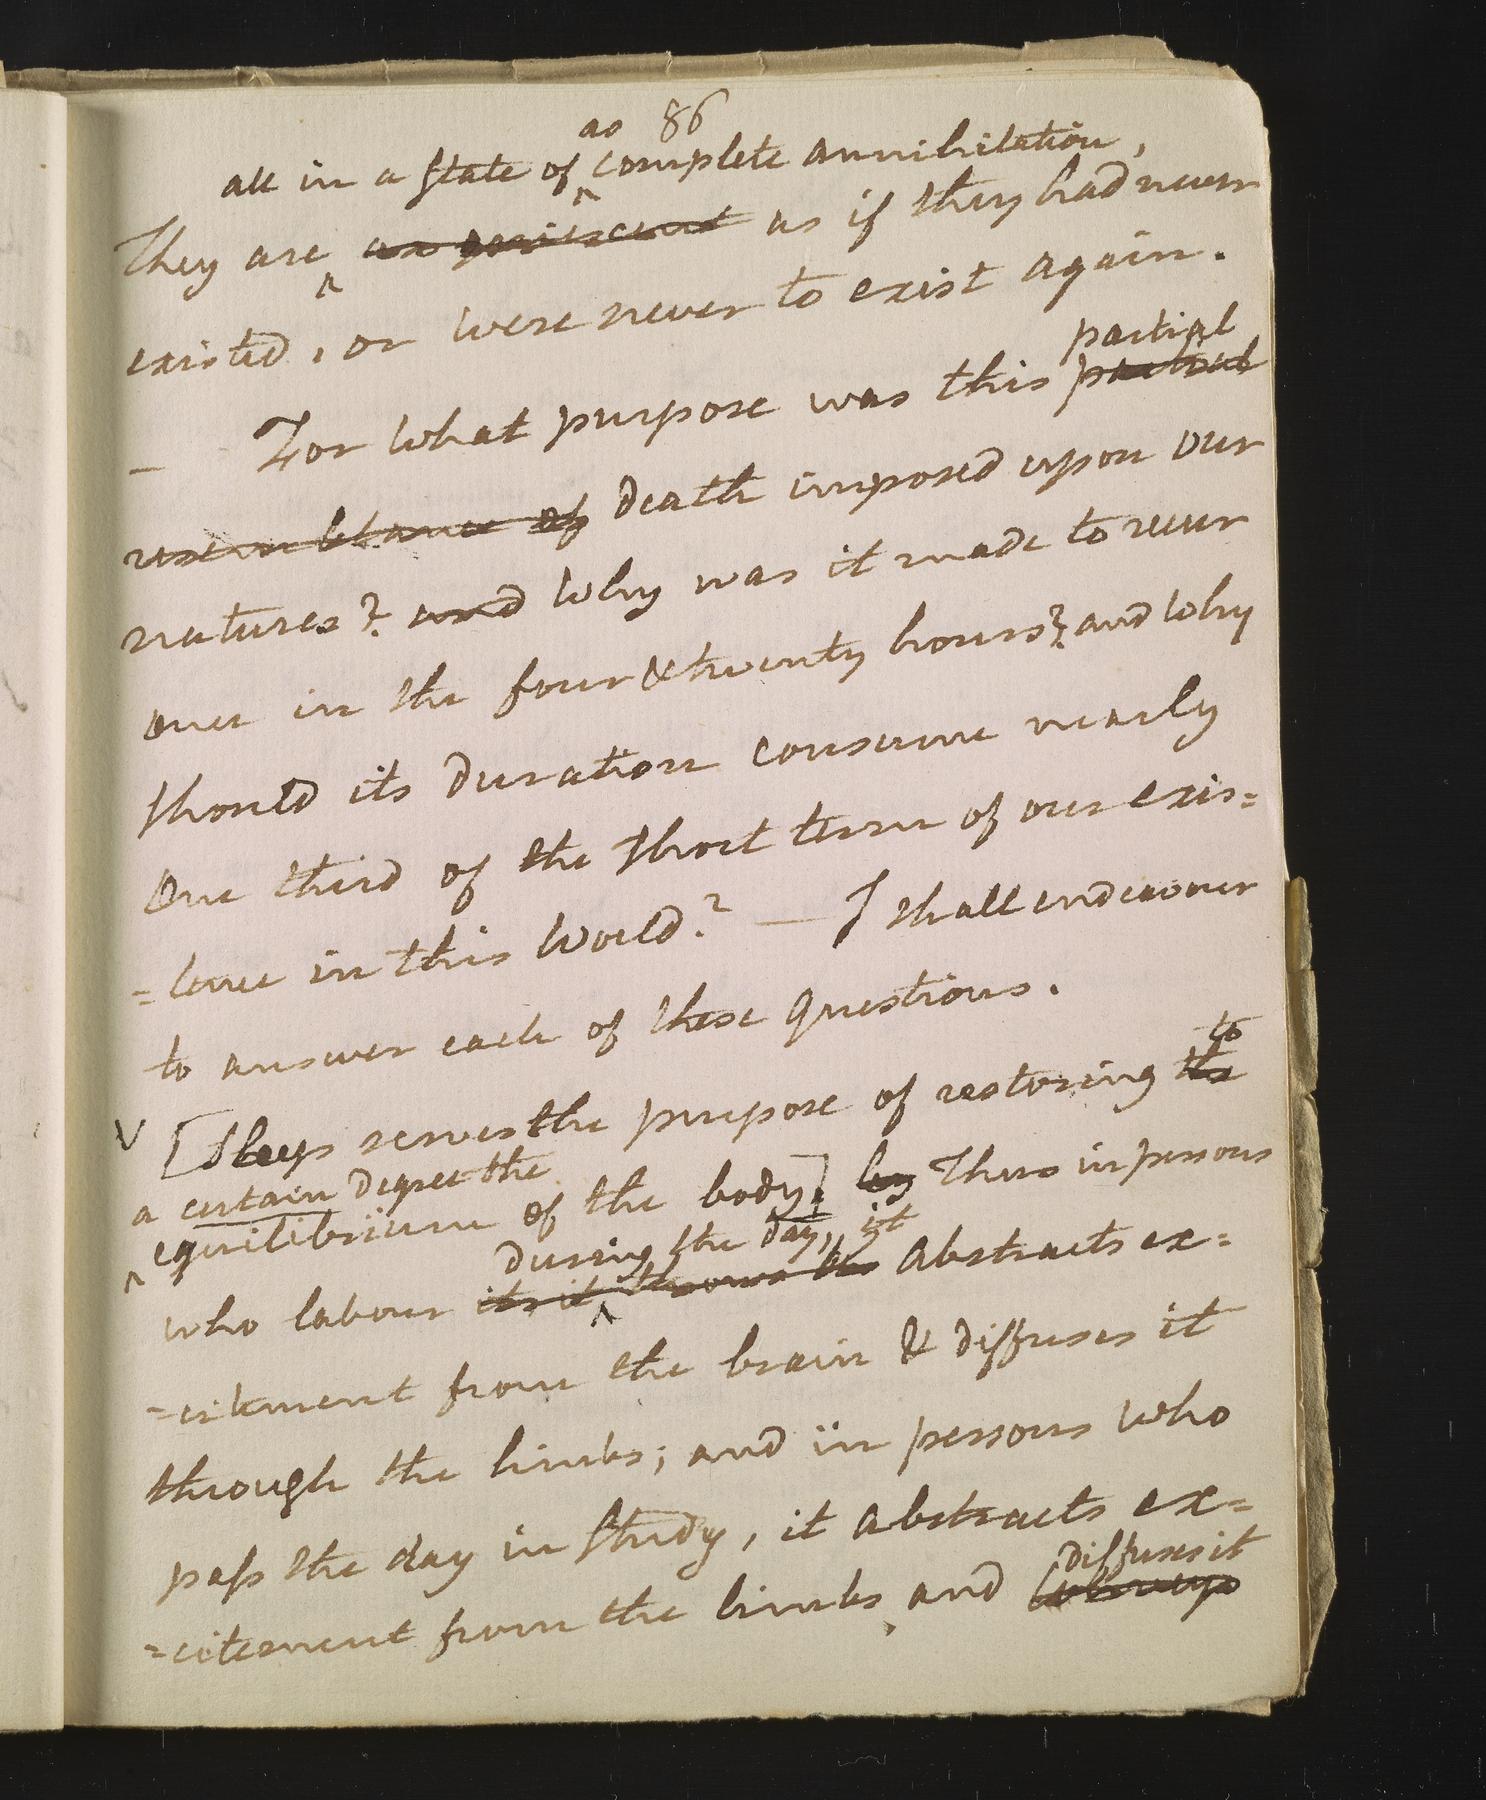 as 86
all in a state of complete annihilation,
They are ^ as if they had never
existed, or were never to exist again.
partial
— For what purpose was this partial
resemblance of death imposed upon our
natures? and Why was it made to recur
once in the four & twenty hours? and Why
should its duration consume nearly
One third of the short term of our exis=
=tence in this World? — I shall endeavour
to answer each of these Questions.
to
V [Sleep serves the purpose of restoring the
a certain degree the
equilibrium of the body]. by Thus in persons
during the day, it
who labour its it throws the Abstracts ex=
=citement from the brain & diffuses it
through the limbs; and in persons who
pass the day in study, it Abstracts ex=
diffuses it
=citement from the limbs, and